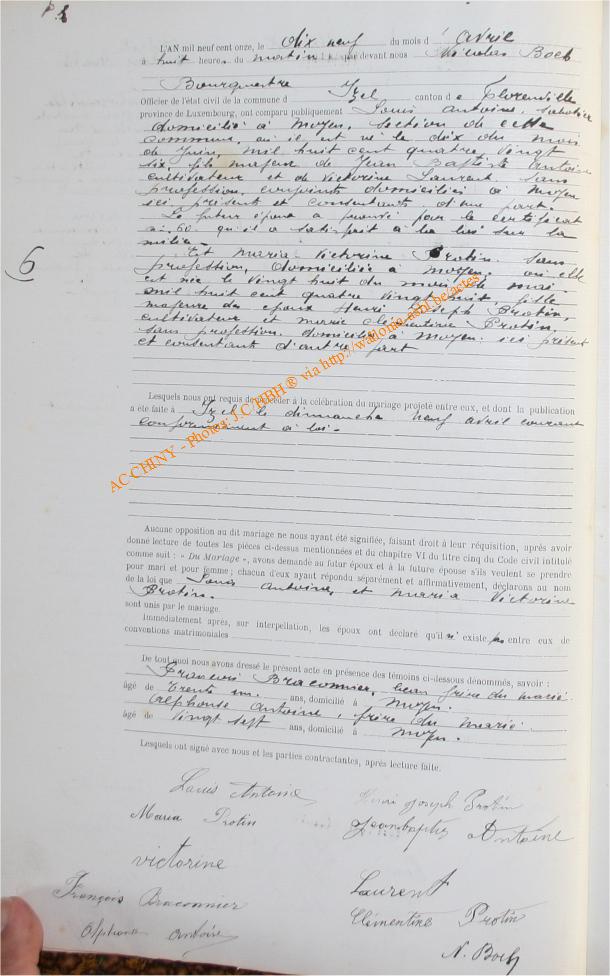 L'AN mil neuf cent onze, le dix neuf du mois d'avril
à huit heures du matin par devant nous Nicolas Boch
Bourgmestre
Officier de l'état civil de la commune d'Izel canton de Florenville
province de Luxembourg, ont comparu publiquement Louis Antoine, sabotier
domicilié à Moyen, section de cette
commune, où il est né le dix du mois
de juin, mil huit cent quatre vingt
six, fils majeur de Jean Baptiste Antoine
cultivateur et de Victorine Laurent sans
profession, conjoints domiciliés à Moyen
ici présents et consentants d'une part.
Le futur époux a prouvé par le certificat
n° 60 qu'il a satisfait à la loi sur la
milice.
Et Maria Victorine Protin sans
profession, domiciliée à Moyen, où elle
est née le vingt huit du mois de mai
mil huit cent quatre vingt huit, fille
majeure des époux Henri Joseph Protin,
cultivateur et Marie Clémentine Protin,
sans profession, domiciliés à Moyen, ici présents
et consentants d'autre part
6
Lesquels nous ont requis de procéder à la célébration du mariage projeté entre eux, et dont la publication
a été faite à Izel le dimanche neuf avril courant
conformément à la loi.
AC CHINY - Photos: J.C HBH ® via http://wallonia-asbl.be/actes
Aucune opposition au dit mariage ne nous ayant été signifiée, faisant droit à leur réquisition, après avoir
donné lecture de toutes les pièces ci-dessus mentionnées et du chapitre VI du titre cinq du Code civil intitulé
comme suit : « Du Mariage », avons demandé au futur époux et à la future épouse s'ils veulent se prendre
pour mari et pour femme ; chacun d'eux ayant répondu séparément et affirmativement, déclarons au nom
de la loi que Louis Antoine, et Maria Victorine
Protin.
sont unis par le mariage.
Immédiatement après, sur interpellation, les époux ont déclaré qu'il n'existe pas entre eux de
conventions matrimoniales
De tout quoi nous avons dressé le présent acte en présence des témoins ci-dessous dénommés, savoir :
François Braconnier, beau frère du marié
âgé de trente un ans, domicilié à Moyen.
Alphonse Antoine, frère du marié
âgé de vingt sept ans, domicilié à Moyen.
Lesquels ont signé avec nous et les parties contractantes, après lecture faite.
Louis Antoine Henri Joseph Protin
Maria Protin Jeanbaptis Antoine
victorine Laurent
François Braconnier Clémentine Protin
Alphonse Antoine N. Boch